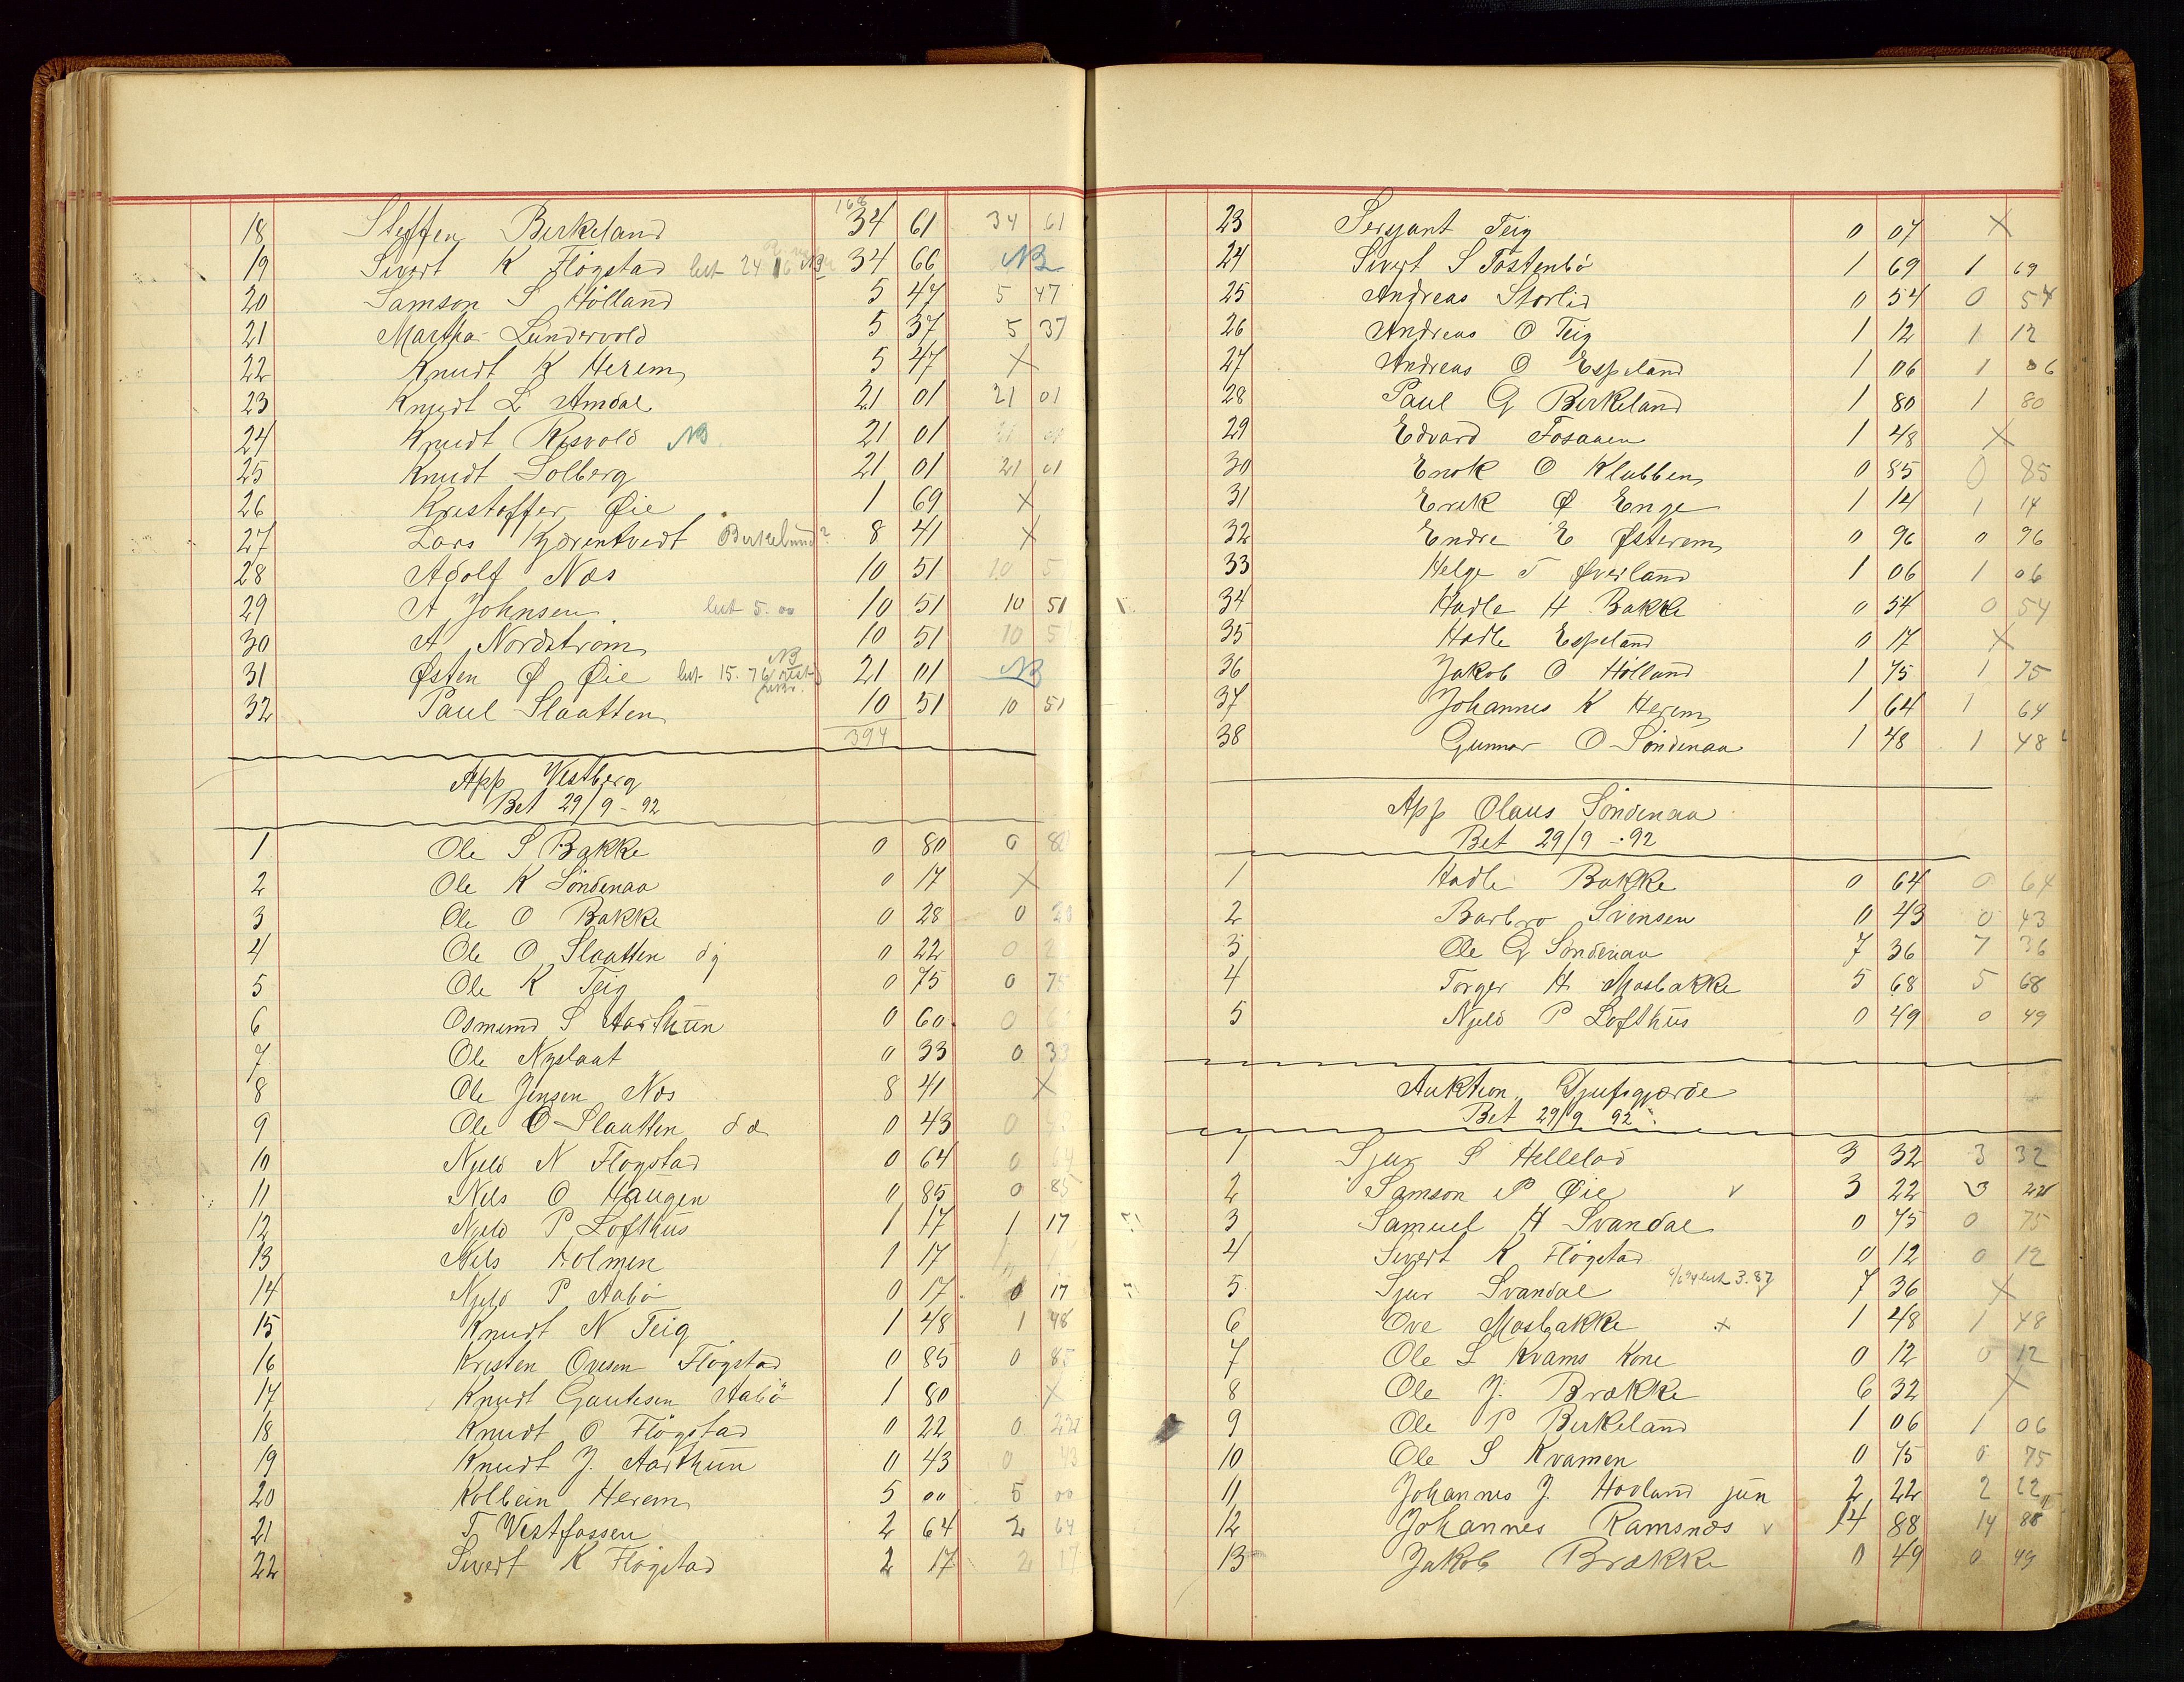 18 Steffen Birkeland 34 61 34 61
19 Sivert K Flögstad bet 24 16 NB 34 66 NB
20 Samson S Hölland 5 47 5 47
21 Martha Lundervold 5 37 5 37
22 Knudt K Herem 5 47 X
23 Knudt L Amdal 21 01 21 01
24 Knudt Risvold NB 21 01
25 Knudt Solberg 21 01 21 01
26 Kristoffer Øie 1 69 X
27 Lars Birkelund? 8 41 X
28 Adolf Næs 10 51 10 5
29 A Johnsen bet 5.00 10 51 10 51
30 A Nordström 10 51 10 5
31 Østen Ø Øie bet 15.76 NB 21 01 NB
32 Paul Slaatten 10 51 10 51
394
App Vestberg
Bet 29/9 - 92
1 Ole S Bakke 0 80 0 80
2 Ole K Söndenaa 0 17 X
3 Ole O Bakke 0 28 0 28
4 Ole O Slaatten dy 0 22 0 2
5 Ole K Teig 0 75 0 75
6 Osmund S Aarthun 0 60 0 6
7 Ole Nyslaat 0 33 0 33
8 Ole Jensen Næs 8 41 X
9 Ole O Slaatten dæ 0 43 0
10 Njeld N Flögstad 0 64 0 64
11 Nils O Haugen 0 85 0 85
12 Njeld P Lofthus 1 17 1 17
13 Nils Holmen 1 17
14 Njeld P Aabö 0 17 0 17
15 Knudt N Teig 1 48 1 48
16 Kristen Ovesen Flögstad 0 85 0 85
17 Knudt Gautesen Aabö 1 80 X
18 Knudt O Flögstad 0 22 0 22
19 Knudt J. Aarthun 0 43 0 43
20 Kolbein Herem 5 00 5 00
21 T Vestfossen 2 64 2 64
22 Sivert K Flögstad 2 17 2 17
23 Sersjant Teig 0 07 X
24 Sivert S Tostenbö 1 69 1 69
25 Andreas Storlid 0 54 0 54
26 Andreas O Teig 1 12 1 12
27 Andreas O Espeland 1 06 1 06
28 Paul G Birkeland 1 80 1 80
29 Edvard Fosanen 1 48 X
30 Enok O Klubben 0 85 0 85
31 Erik Ø Enge 1 14 1 14
32 Endre E Østerem 0 96 0 96
33 Helge T Øverland 1 06 1 06
34 Hadle H Bakke 0 54 0 54
35 Hadle Espeland 0 17 X
36 Jakob O Hölland 1 75 1 75
37 Johannes K Herem 1 64 1 64
38 Gunnar O Söndenaa 1 48 1 48
App Olaus Söndenaa
Bet 29/9 - 92
1 Hadle Bakke 0 64 0 64
2 Barbro Svensen 0 43 0 43
3 Ole G Söndenaa 7 36 7 36
4 Torger H Mosbakke 5 68 5 68
5 Njeld P Lofthus 0 49 0 49
Auktion Djufsgjærde
Bet 29/9 92
1 Sjur S Helleland 3 32 3 32
2 Samson P Øie v 3 22 3 22
3 Samuel H Svandal 0 75 0 75
4 Sivert K Flögstad 0 12 0 12
5 Sjur Svandal bet 3.87 7 36 X
6 Ove Mosbakke x 1 48 1 48
7 Ole S Kvams Kone 0 12 0 12
8 Ole J. Brække 6 32 X
9 Ole P Birkeland 1 06 1 06
10 Ole S Kvamen 0 75 0 75
11 Johannes J. Hovland jun 2 22 2 22
12 Johannes Ramsnæs v 14 88 14 88
13 Jakob Brække 0 49 0 49